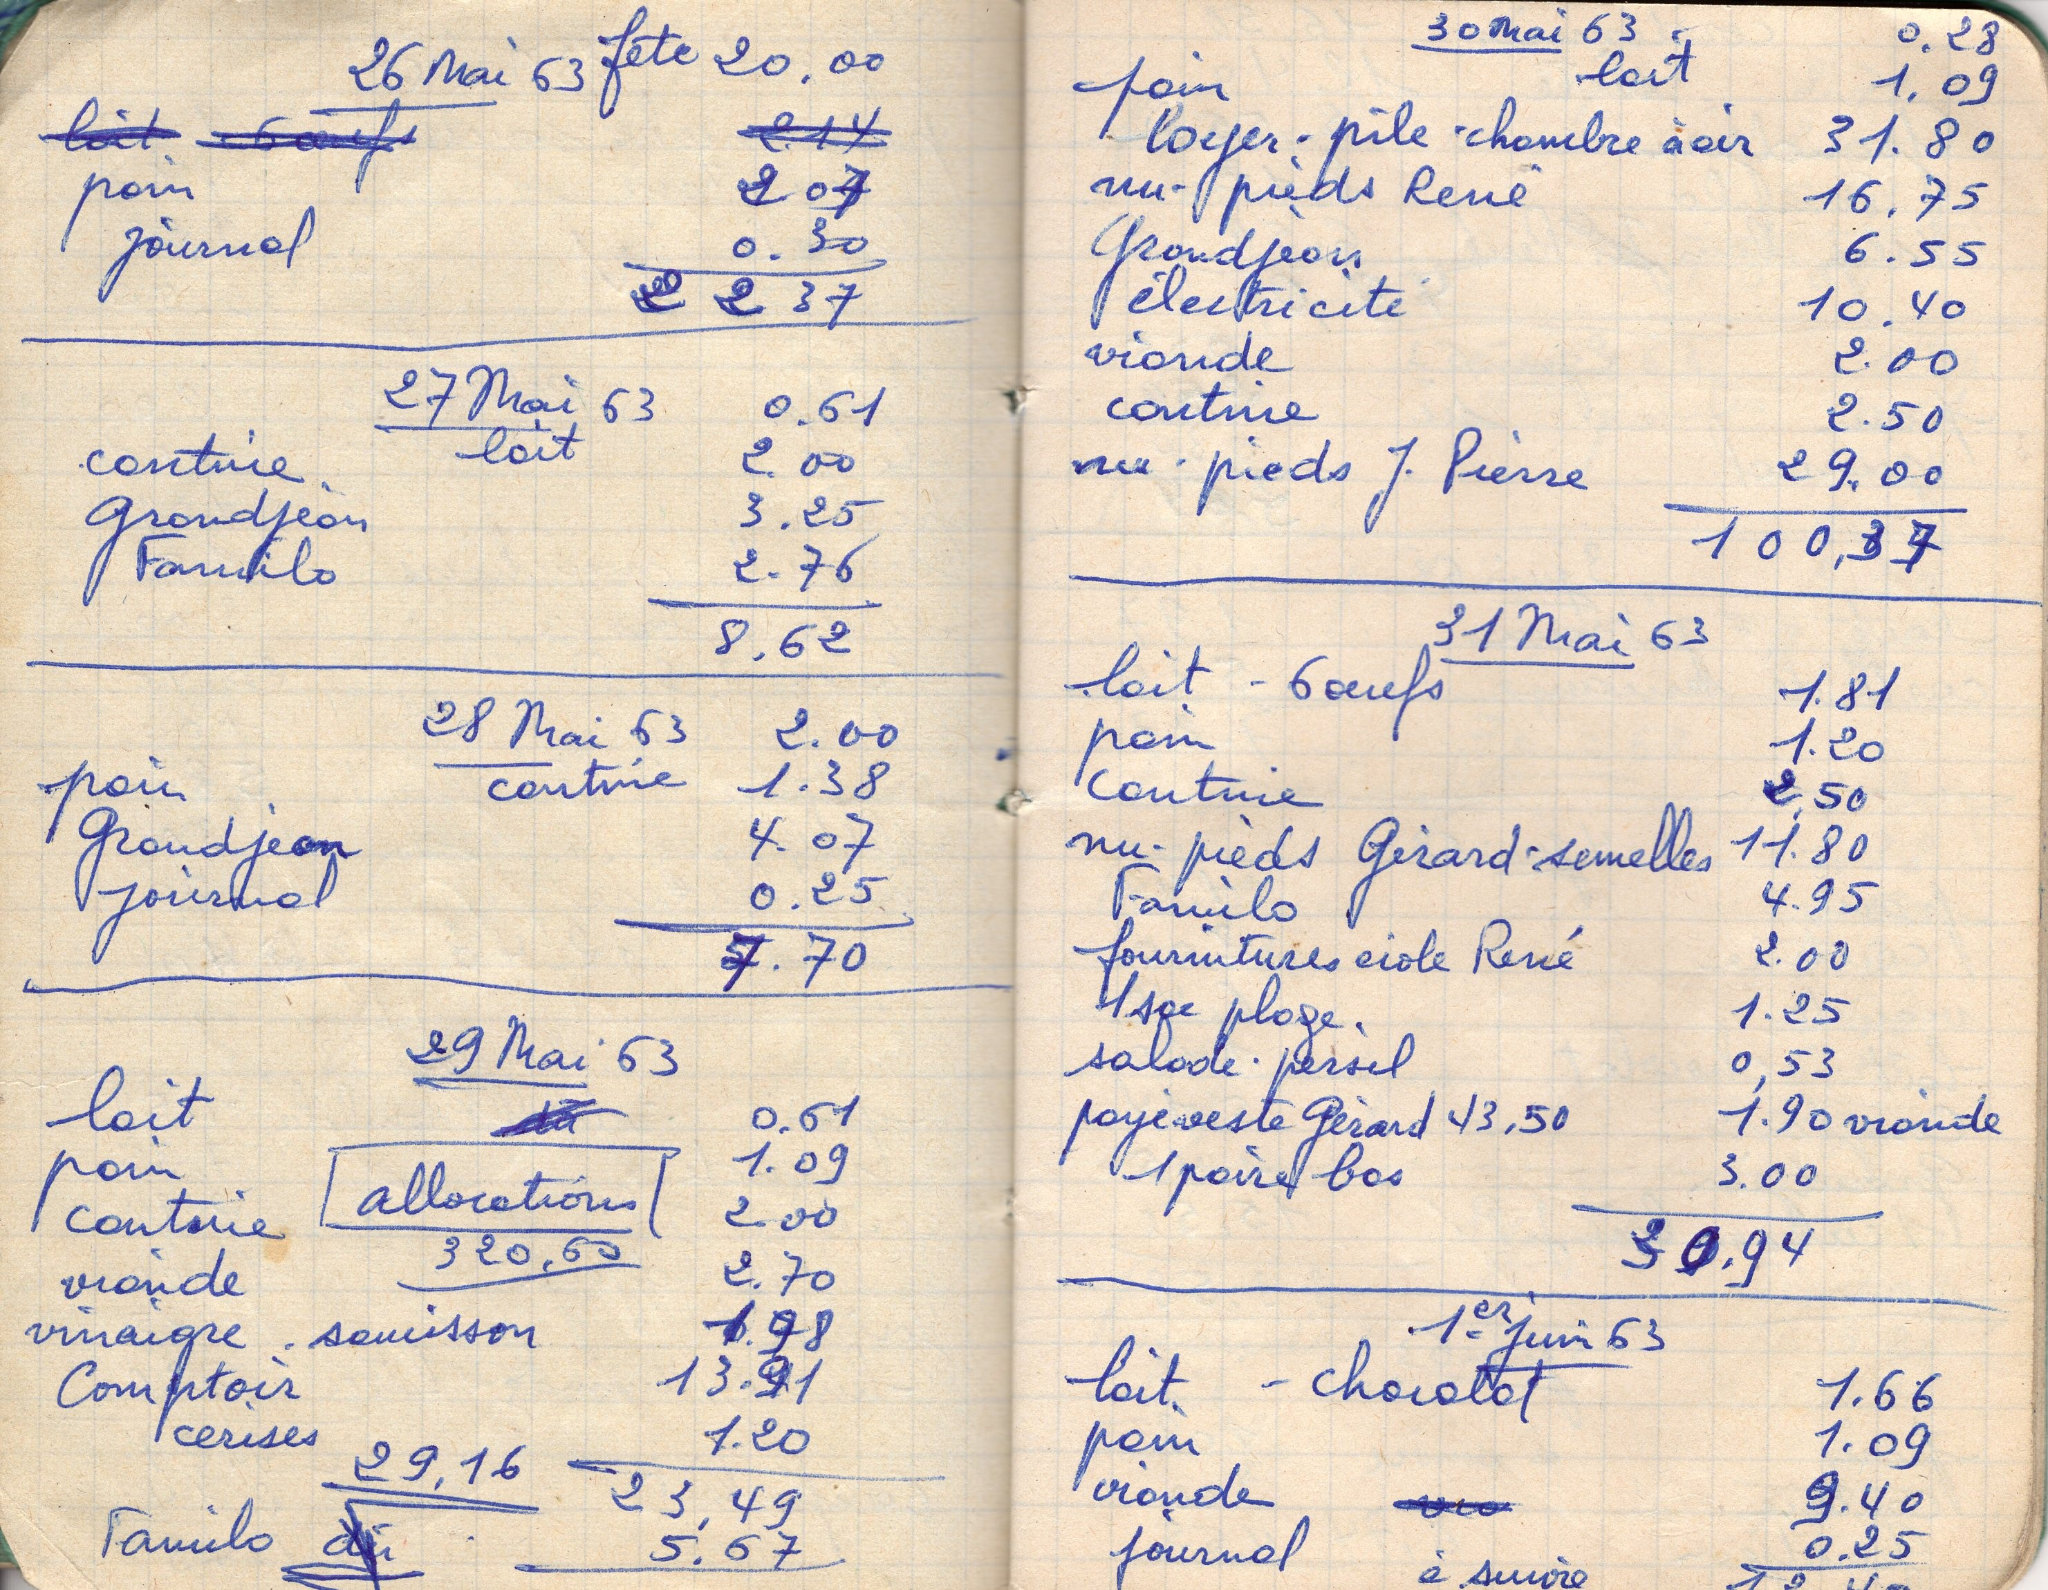 26 Mai 63 fête 20.00
lait 6 œufs 2.14
pain 2 07
journal 0.30
2 2 37
27 Mai 63 0.61
lait
cantine 2.00
Grandjean 3.25
Familo 2.76
8.62
28 Mai 63 2.00
cantine
pain 1.38
Grandjean 4.07
journal 0.25
7.70
29 Mai 63
lait 0.61
pain 1.09
allocations
cantine 2.00
320,60
viande 2.70
vinaigre - saucisson 1.98
Comptoir 13.91
cerises 1.20
29,16 23,49
Familo du 5.67
30 Mai 63 - 0.28
lait
pain 1.09
loyer - pile - chambre à air 31.80
nu-pieds René 16.75
Grandjean 6.55
électricité 10.40
viande 2.00
cantine 2.50
nu-pieds J. Pierre 29.00
100,37
31 Mai 63
lait - 6 œufs 1.81
pain 1.20
cantine 2,50
nu-pieds Gérard - semelles 11.80
Familo 4.95
fournitures école René 2.00
1 sac plage. 1.25
salade - persil 0,53
payé veste Gérard 43,50 1.90 viande
1 paire bas 3.00
30.94
1er juin 63
lait - chocolat 1.66
pain 1.09
viande 9.40
journal 0.25
à suivre